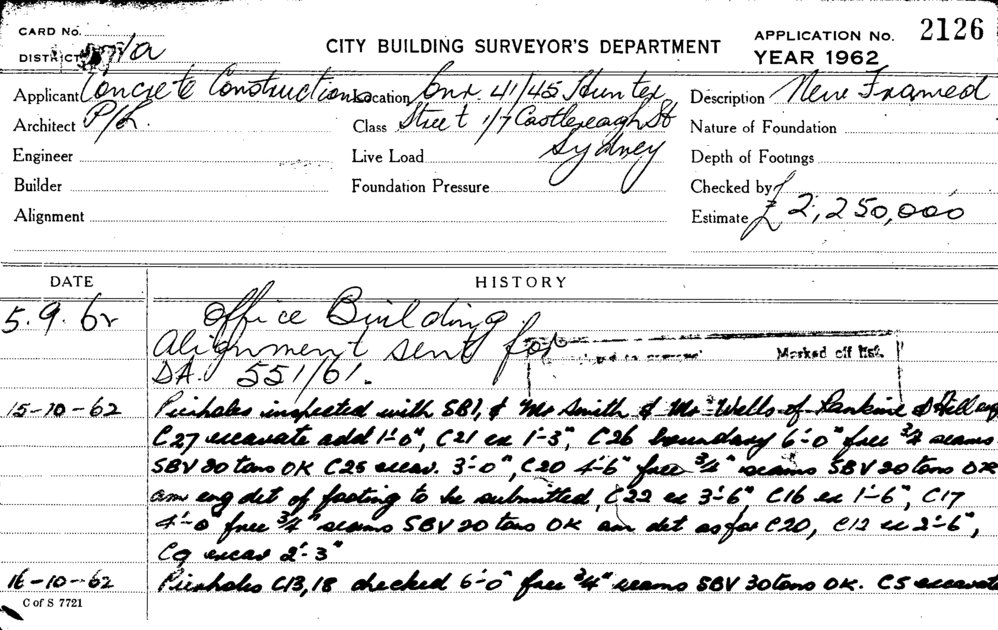 CARD No.
DISTRICT
CITY BUILDING SURVEYOR'S DEPARTMENT
APPLICATION No. 2126
YEAR 1962
Applicant Concrete Constructions
Location Cnr. 41/45 Hunter
Description New Framed
Architect P/L.
Class Street 1/7 Castlereagh St
Nature of Foundation
Engineer
Live Load Sydney
Depth of Footings
Builder
Foundation Pressure
Checked by
Alignment
Estimate £2,250,000
DATE HISTORY
5.9.62 Office Building
Alignment sent for
DA. 551/61.
Marked off list.
15-10-62 Pierholes inspected with SBI, & Mr Smith & Mr Wells of Rankine & Hill eng
C27 excavate add 1'-0", C21 ex 1'-3", C26 boundary 6'-0" free 3/4" seams
SBV 20 tons OK C25 excav. 3'-0", C20 4'-6" free 3/4" seams SBV 20 tons OK
am eng det of footing to be submitted, C22 ex 3'-6" C16 ex 1'-6", C17
4'-0" free 3/4" seams SBV 20 tons OK am det as for C20, C12 ex 2'-6",
C9 excav 2'-3"
16-10-62 Pierholes C13,18 checked 6'-0" free 3/4" seams SBV 30 tons OK. C5 excavate
C of S 7721